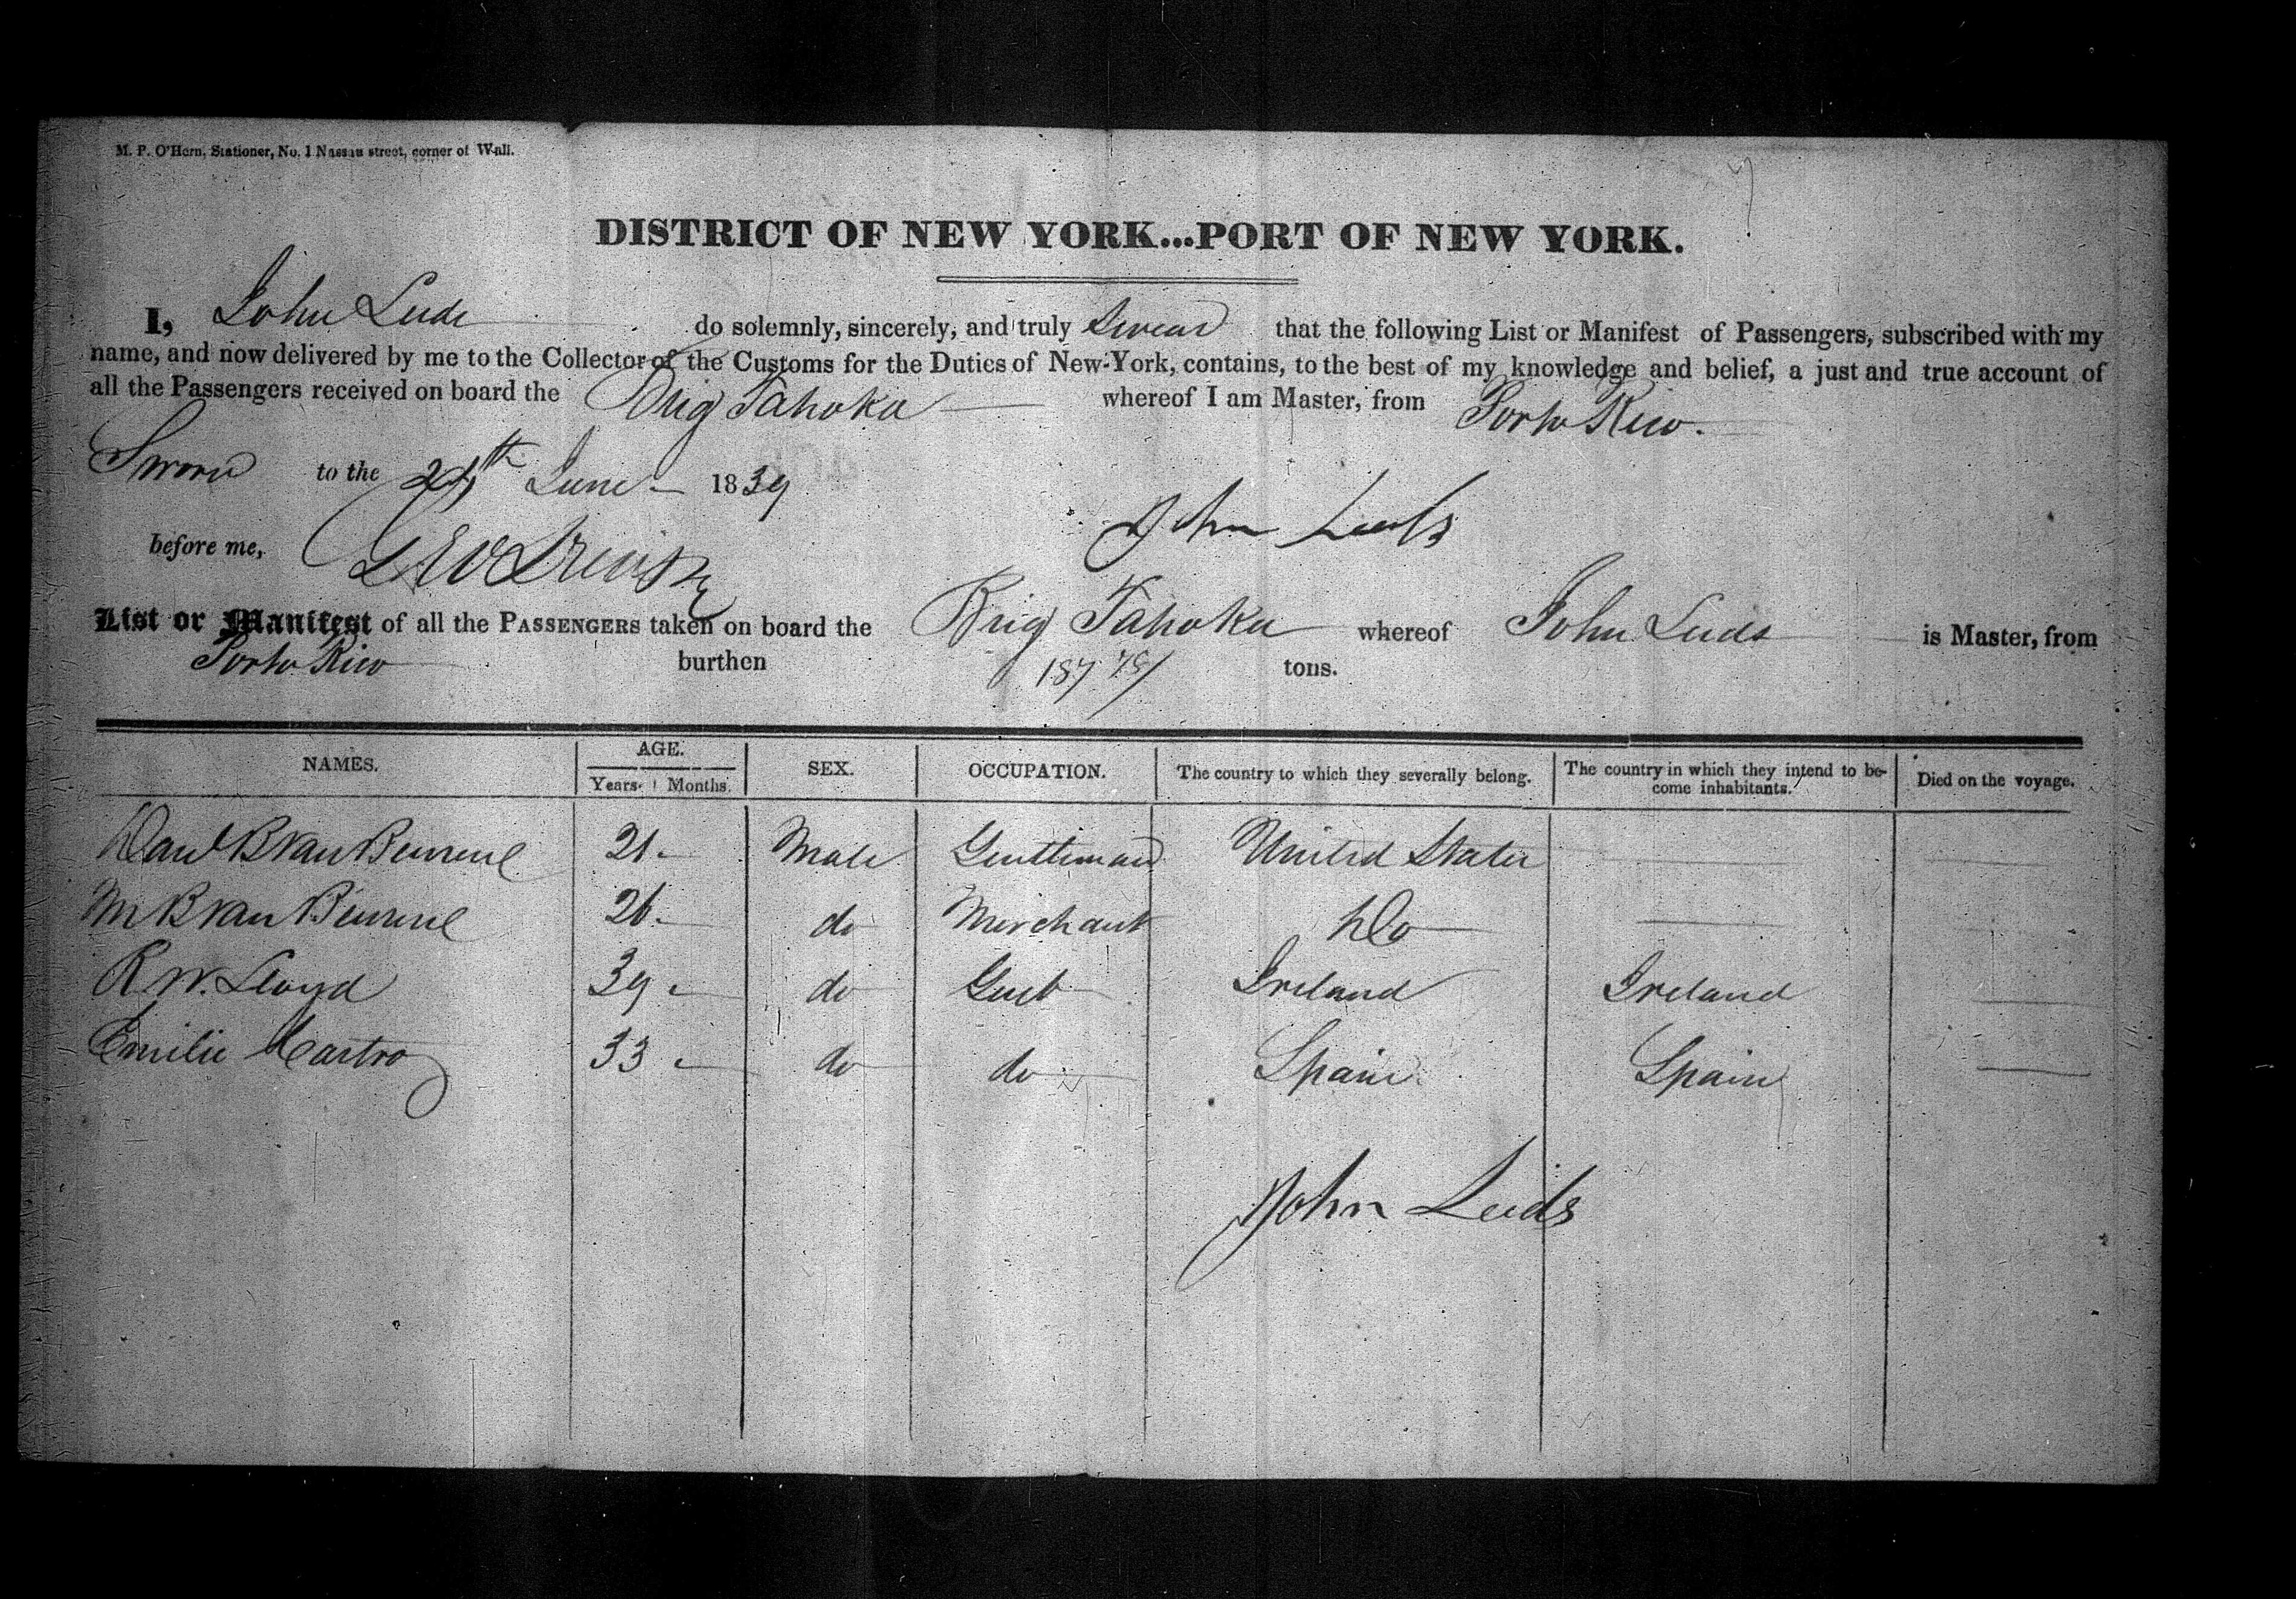 M. P. O'Hern, Stationer, No. 1 Nassau street, corner of Wall.
DISTRICT OF NEW YORK...PORT OF NEW YORK.
I, John Leeds do solemnly, sincerely, and truly Swear that the following List or Manifest of Passengers, subscribed with my
name, and now delivered by me to the Collector of the Customs for the Duties of New-York, contains, to the best of my knowledge and belief, a just and true account of
all the Passengers received on board the Brig Tahoka whereof I am Master, from Porto Rico.
Sworn to the 24th June 1839
John Leeds
before me,
List or Manifest of all the PASSENGERS taken on board the Brig Tahoka whereof John Leeds is Master, from
Porto Rico burthen 187 tons.
NAMES. AGE. Years. Months. SEX. OCCUPATION. The country to which they severally belong. The country in which they intend to become inhabitants. Died on the voyage.
Van Beurene 21 Male Gentleman United States
Van Beurene 26 do Merchant Do
R W. Lloyd 39 do Gent Ireland Ireland
Emilie Castro 33 do do Spain Spain
John Leeds